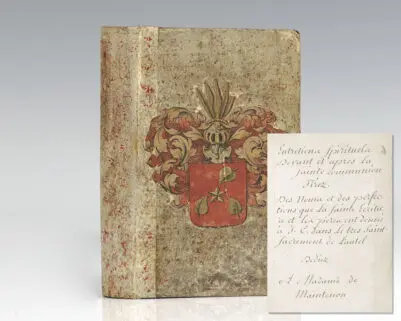 Entretiens Spirituels
Devant et après la
Sainte Communion
Tirez
Des Noms et des perfec-
tions que la Sainte Ecritu-
re et les peres ont donné
à J. C. dans le tres Saint
Sacrement de l'autel
Dediez
A Madame de
Maintenon